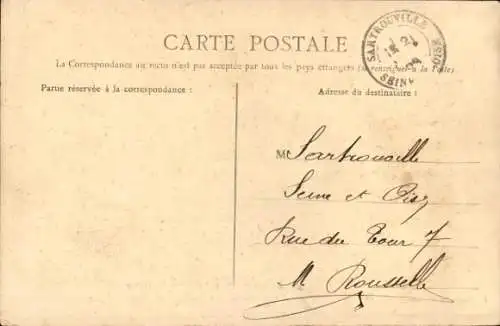 CARTE POSTALE
La Correspondance au recto n'est pas acceptée par tous les pays étrangers (se renseigner à la Poste)
Partue réservée à la correspondance :
Adresse du destinataire :
SARTROUVILLE
SEINE OISE
M Sartrouville
Seine et Oise
Rue du Tour 7
M Rousselle